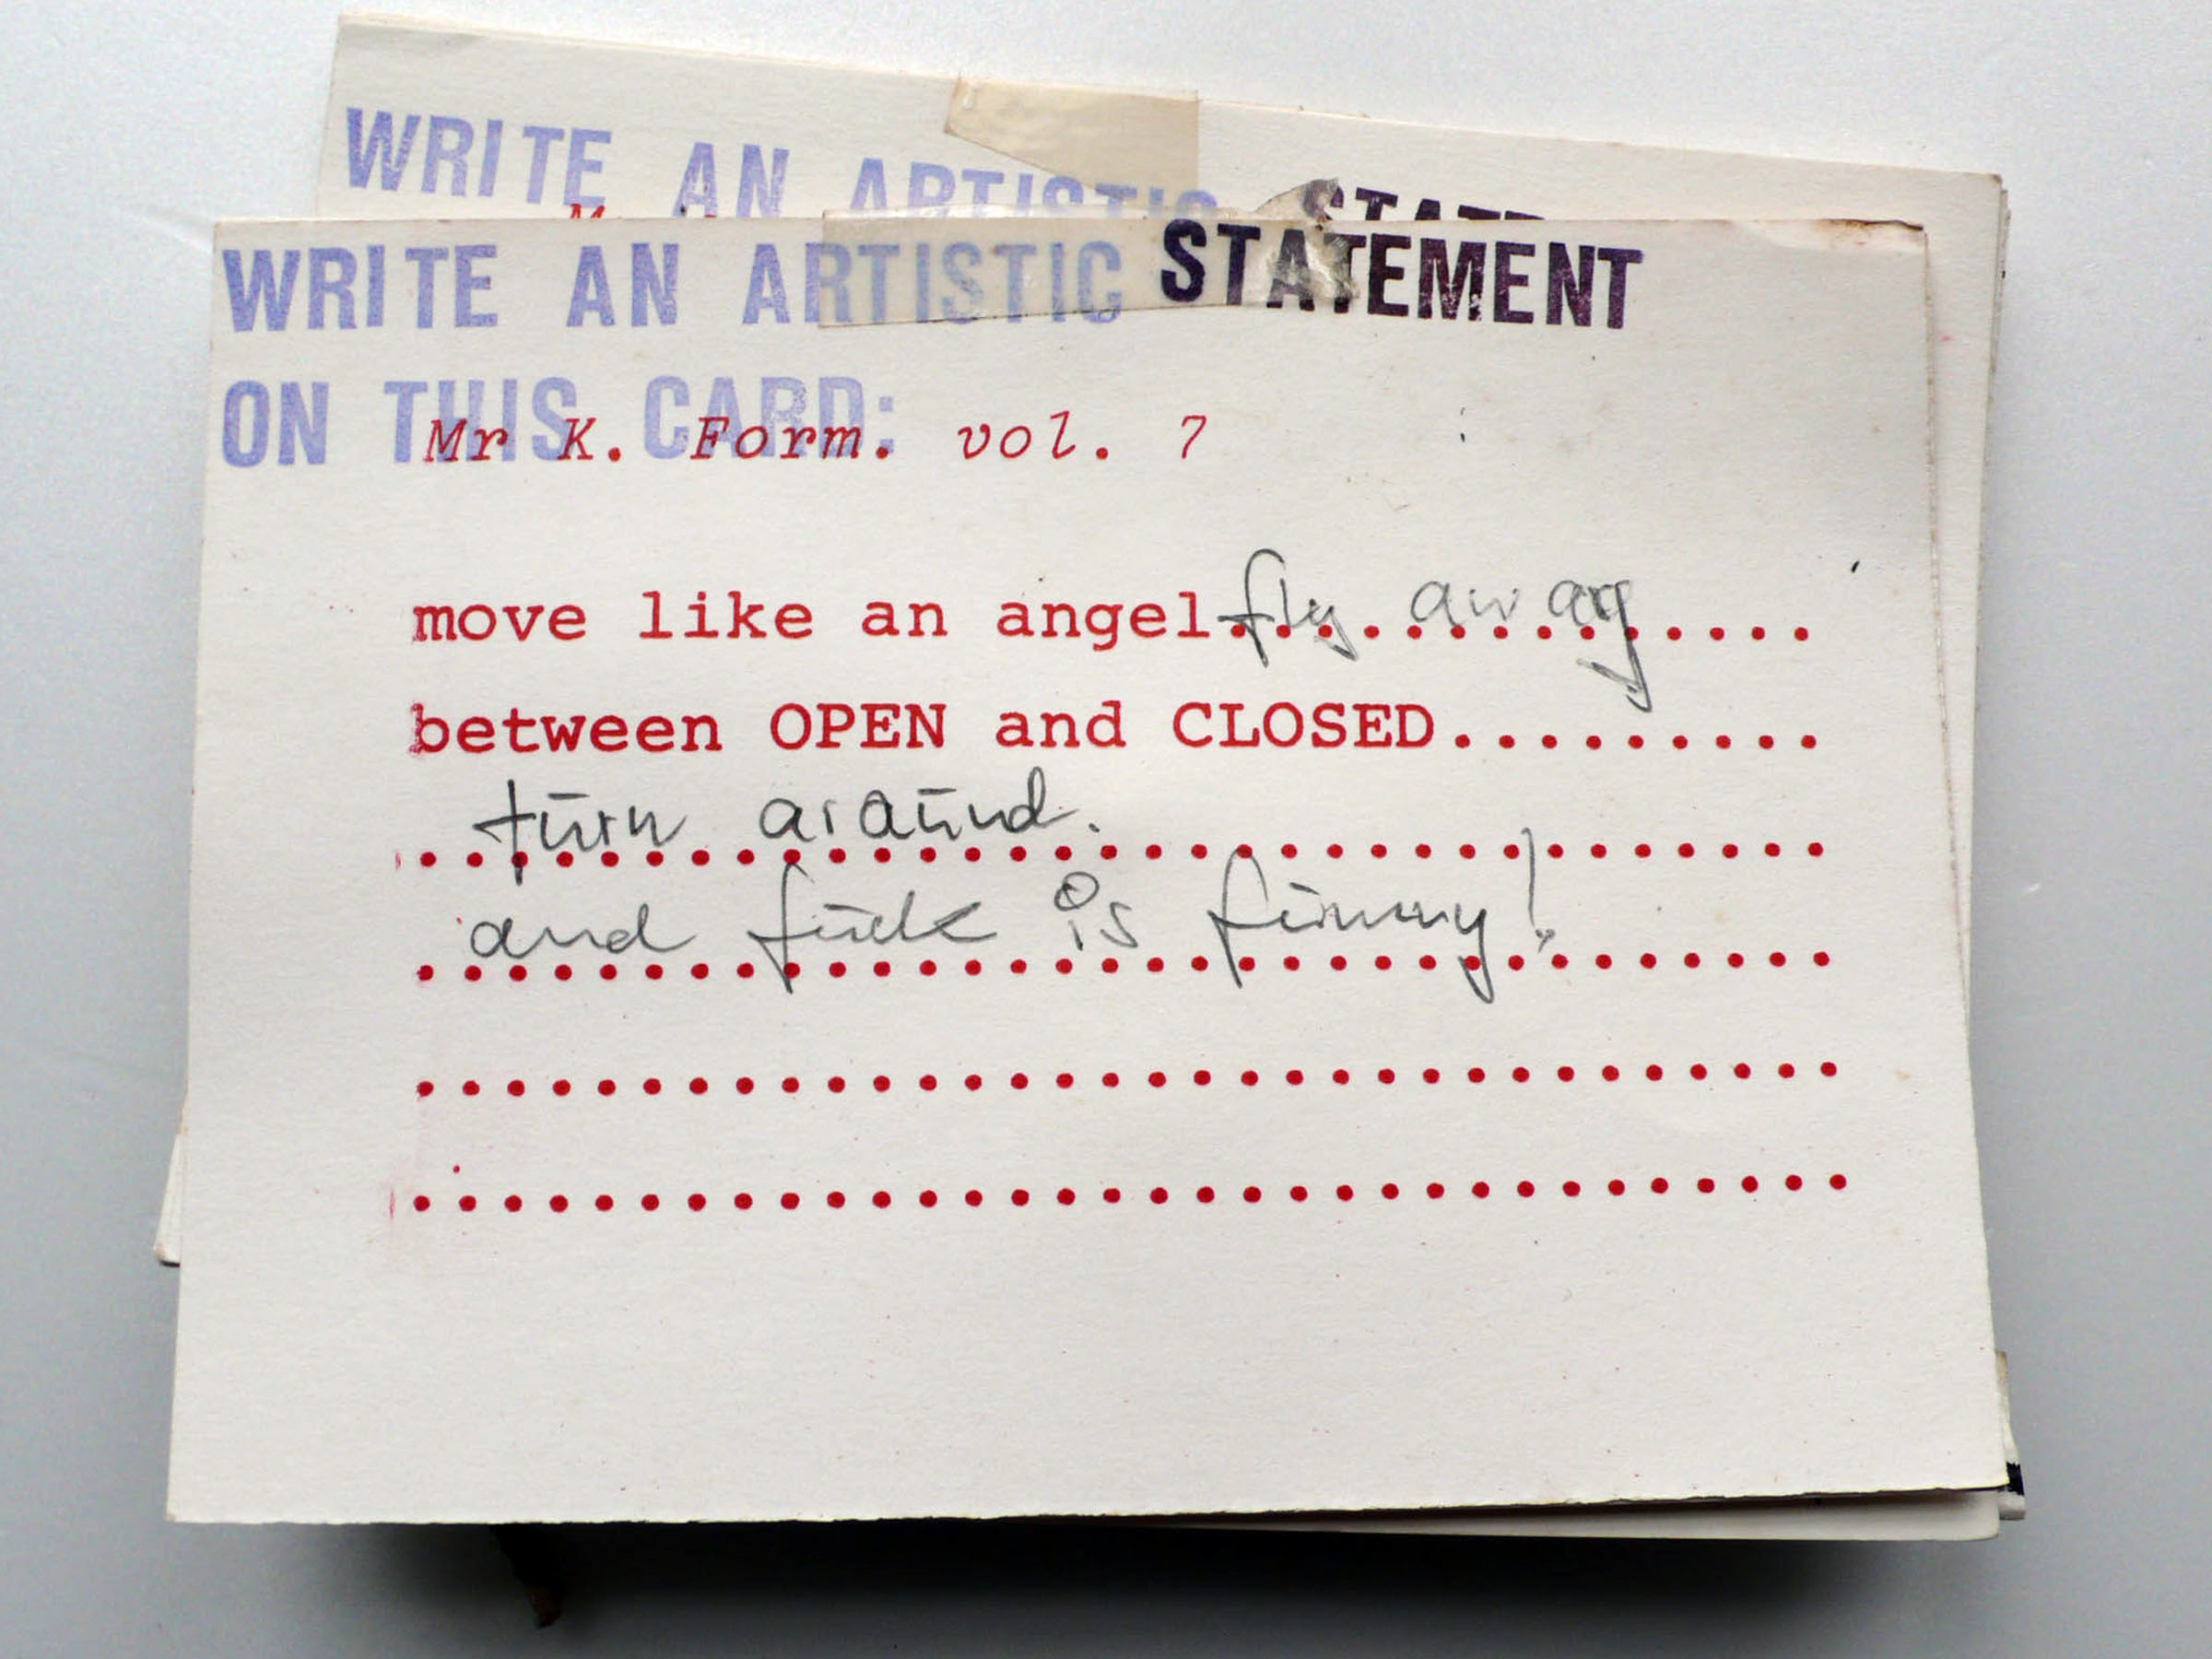 WRITE AN ARTISTIC STATE
WRITE AN ARTISTIC STATEMENT
ON THIS CARD:
Mr K. Form. vol. 7
move like an angel.fly away..............
between OPEN and CLOSED.........
turn around.
and fuck is funny!